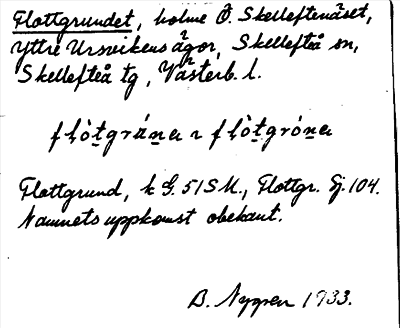 Flottgrundet, holme Ö. Skelleftenäset,
Yttre Ursvikens ägor, Skellefteå sn,
Skellefteå tg, Västerb. l.
Flottgrund, k G. 51 S M., Flottgr. Sj. 104.
Namnets uppkomst obekant.
B. Nygren 1933.